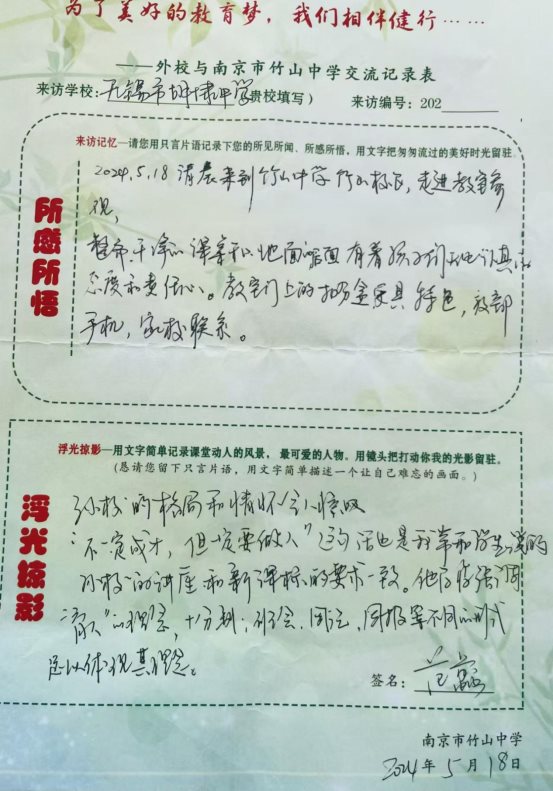 为了美好的教育梦，我们相伴健行······
——外校与南京市竹山中学交流记录表
来访学校：无锡市 中学 贵校填写）　来访编号：202
来访记忆—请您用只言片语记录下您的所见所闻、所感所悟，用文字把匆匆流过的美好时光留驻。
所感所悟
2024.5.18 清晨来到竹山中学竹山校区，走进教室参
观，
整齐、干净的课桌和地面 面有着孩子们 认真的
态度和责任心。教室门上的 盒更具特色，放部
手机，家校联系。
浮光掠影—用文字简单记录课堂动人的风景，最可爱的人物。用镜头把打动你我的光影留驻。
（恳请您留下只言片语，用文字简单描述一个让自己难忘的画面。）
浮光掠影
孙校的格局和情怀令人惊叹
“不一定成才，但一定要做人”这句话也是我常和学生说的
孙校的讲座和新课标的要求一致。他 强调
“ 人”的理念，十分 ； ，图 ， 报等不同的形式
足以体现其理念。
签名：
南京市竹山中学
2024年5月18日